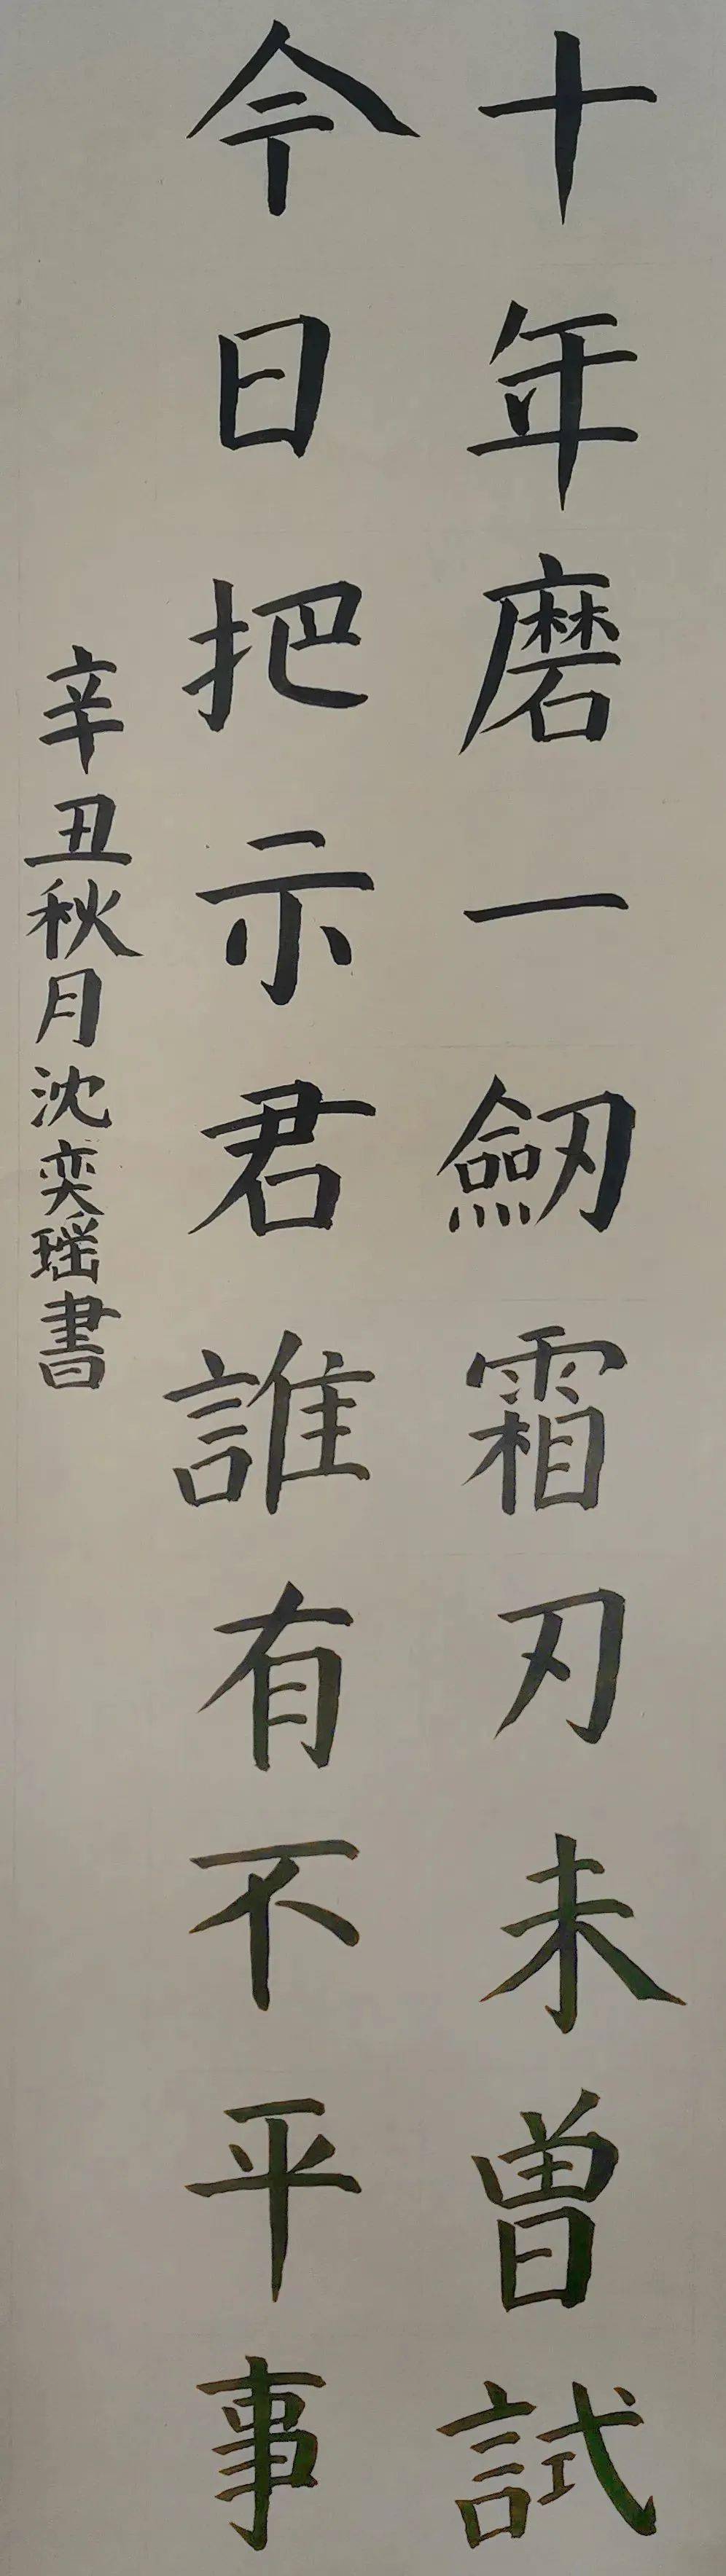 十年磨一劒霜刃未曾試
今日把示君誰有不平事
辛丑秋月沈奕瑶書